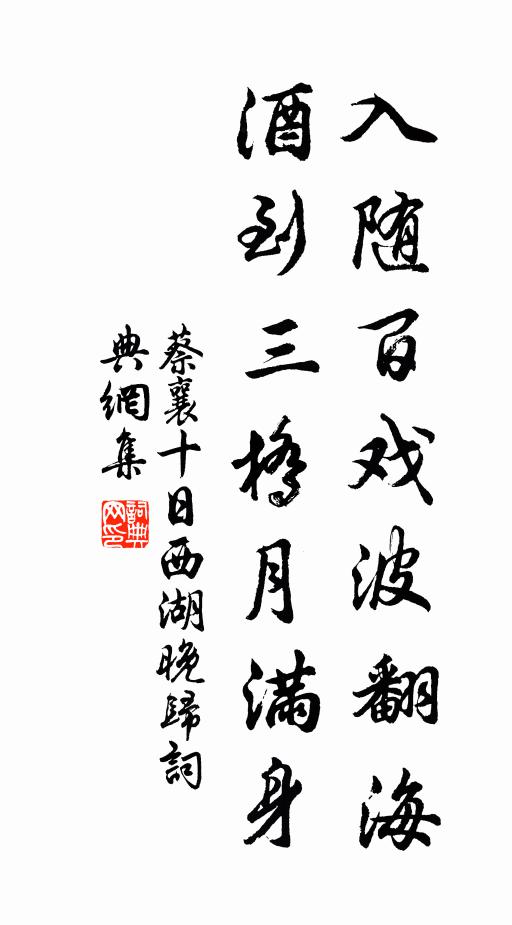 入随百戏波翻海
酒到三橋月满身
蔡襄十日西湖晚歸詞
典網集
詞典
网印